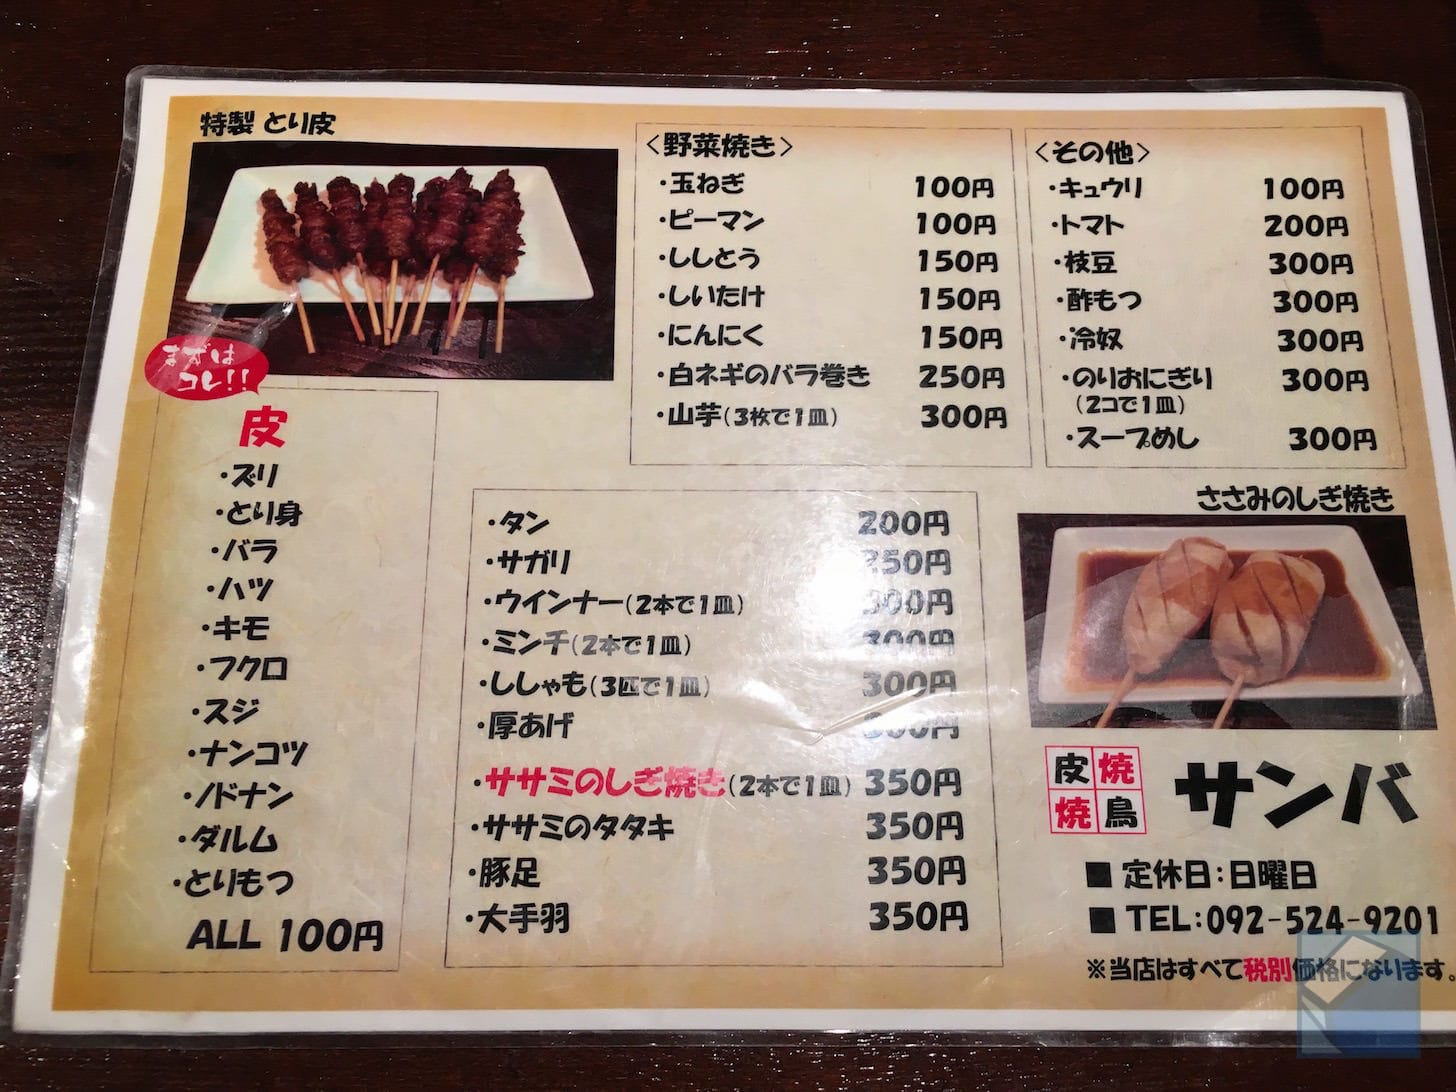 特製 とり皮
まずは
コレ!!
皮
・ズリ
・とり身
・バラ
・ハツ
・キモ
・フクロ
・スジ
・ナンコツ
・ノドナン
・ダルム
・とりもつ
ALL 100円
<野菜焼き>
・玉ねぎ 100円
・ピーマン 100円
・ししとう 150円
・しいたけ 150円
・にんにく 150円
・白ネギのバラ巻き 250円
・山芋(3枚で1皿) 300円
<その他>
・キュウリ 100円
・トマト 200円
・枝豆 300円
・酢もつ 300円
・冷奴 300円
・のりおにぎり 300円
(2コで1皿)
・スープめし 300円
・タン 200円
・サガリ 250円
・ウインナー(2本で1皿) 300円
・ミンチ(2本で1皿) 300円
・ししゃも(3匹で1皿) 300円
・厚あげ 300円
・ササミのしぎ焼き(2本で1皿) 350円
・ササミのタタキ 350円
・豚足 350円
・大手羽 350円
ささみのしぎ焼き
皮焼
焼鳥
サンバ
■ 定休日:日曜日
■ TEL:092-524-9201
※当店はすべて税別価格になります。